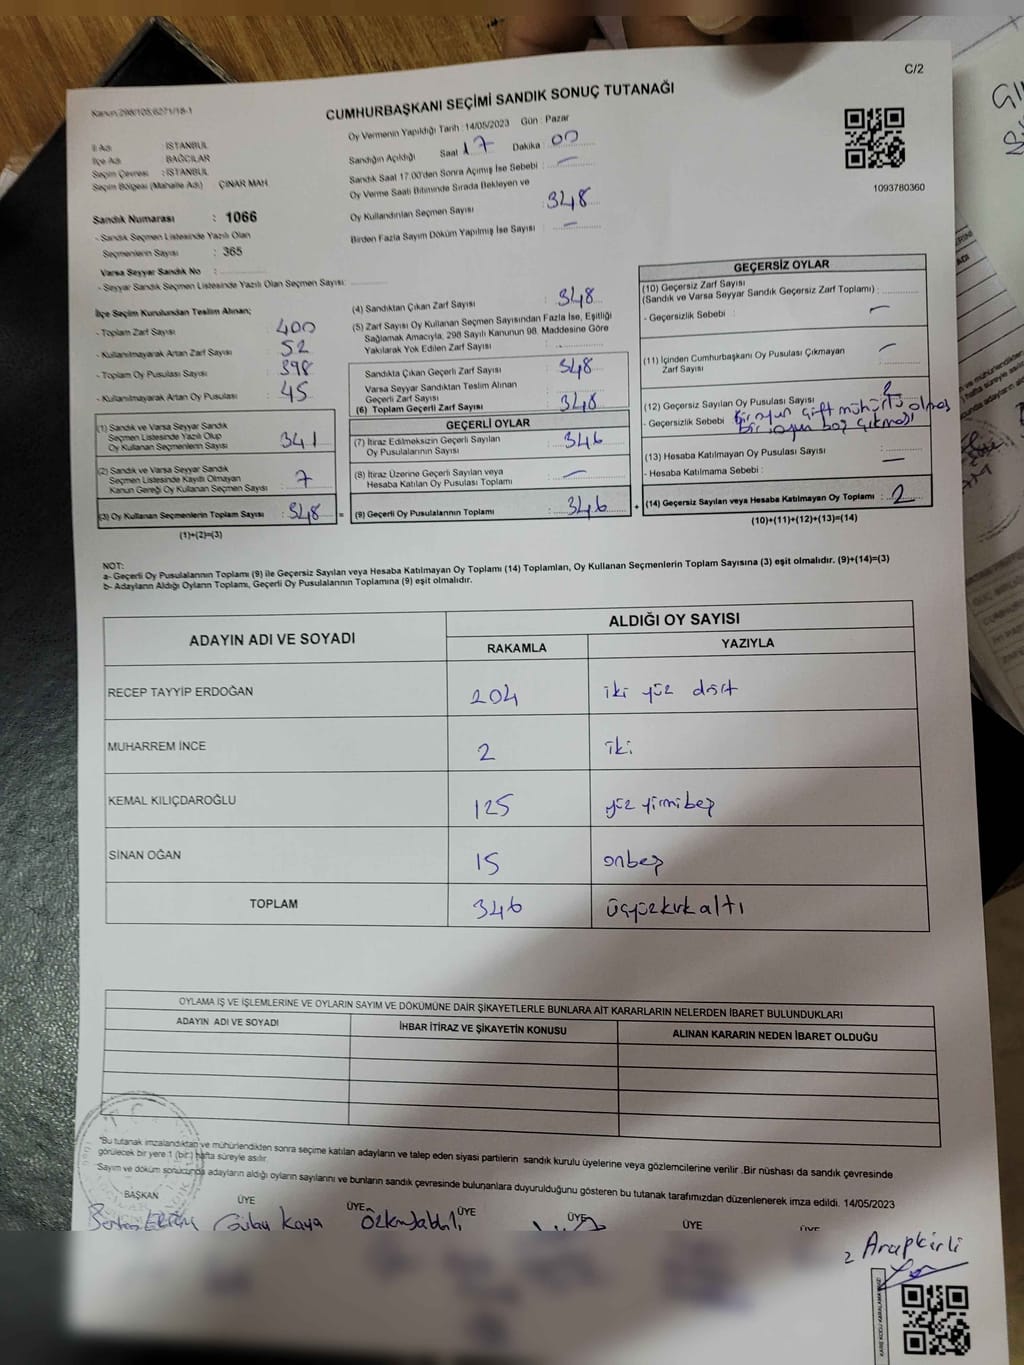 C/2
Kanun:298/105;6271/18-1
CUMHURBAŞKANI SEÇİMİ SANDIK SONUÇ TUTANAĞI
İl Adı : İSTANBUL
İlçe Adı : BAĞCILAR
Seçim Çevresi : İSTANBUL
Seçim Bölgesi (Mahalle Adı) ÇINAR MAH.
Sandık Numarası : 1066
- Sandık Seçmen Listesinde Yazılı Olan
Seçmenlerin Sayısı : 365
Varsa Seyyar Sandık No :
- Seyyar Sandık Seçmen Listesinde Yazılı Olan Seçmen Sayısı:
Oy Vermenin Yapıldığı Tarih : 14/05/2023 Gün : Pazar
Sandığın Açıldığı Saat 17 Dakika : 00
Sandık Saat 17.00'den Sonra Açımış İse Sebebi : —
Oy Verme Saati Bitiminde Sırada Bekleyen ve
Oy Kullandırılan Seçmen Sayısı : 348
Birden Fazla Sayım Döküm Yapılmış İse Sayısı : —
1093780360
İlçe Seçim Kurulundan Teslim Alınan;
- Toplam Zarf Sayısı : 400
- Kullanılmayarak Artan Zarf Sayısı : 52
- Toplam Oy Pusulası Sayısı : 398
- Kullanılmayarak Artan Oy Pusulası : 45
(1) Sandık ve Varsa Seyyar Sandık
Seçmen Listesinde Yazılı Olup
Oy Kullanan Seçmenlerin Sayısı : 341
(2) Sandık ve Varsa Seyyar Sandık
Seçmen Listesinde Kayıtlı Olmayan
Kanun Gereği Oy Kullanan Seçmen Sayısı : 7
(3) Oy Kullanan Seçmenlerin Toplam Sayısı : 348 =
(1)+(2)=(3)
(4) Sandıktan Çıkan Zarf Sayısı : 348
(5) Zarf Sayısı Oy Kullanan Seçmen Sayısından Fazla İse, Eşitliği
Sağlamak Amacıyla, 298 Sayılı Kanunun 98. Maddesine Göre
Yakılarak Yok Edilen Zarf Sayısı :
Sandıkta Çıkan Geçerli Zarf Sayısı : 348
Varsa Seyyar Sandıktan Teslim Alınan
Geçerli Zarf Sayısı :
(6) Toplam Geçerli Zarf Sayısı : 348
GEÇERLİ OYLAR
(7) İtiraz Edilmeksizin Geçerli Sayılan
Oy Pusulasının Sayısı : 346
(8) İtiraz Üzerine Geçerli Sayılan veya
Hesaba Katılan Oy Pusulası Toplamı : —
(9) Geçerli Oy Pusulalarının Toplamı : 346 +
GEÇERSİZ OYLAR
(10) Geçersiz Zarf Sayısı
(Sandık ve Varsa Seyyar Sandık Geçersiz Zarf Toplamı) :
- Geçersizlik Sebebi : —
(11) İçinden Cumhurbaşkanı Oy Pusulası Çıkmayan
Zarf Sayısı : —
(12) Geçersiz Sayılan Oy Pusulası Sayısı : 2
- Geçersizlik Sebebi Bir oyun çift mühürlü olması
bir oyun boş çıkması
(13) Hesaba Katılmayan Oy Pusulası Sayısı :
- Hesaba Katılmama Sebebi : —
(14) Geçersiz Sayılan veya Hesaba Katılmayan Oy Toplamı : 2
(10)+(11)+(12)+(13)=(14)
NOT:
a- Geçerli Oy Pusulalarının Toplamı (9) ile Geçersiz Sayılan veya Hesaba Katılmayan Oy Toplamı (14) Toplamları, Oy Kullanan Seçmenlerin Toplam Sayısına (3) eşit olmalıdır. (9)+(14)=(3)
b- Adayların Aldığı Oyların Toplamı, Geçerli Oy Pusulalarının Toplamına (9) eşit olmalıdır.
ADAYIN ADI VE SOYADI
ALDIĞI OY SAYISI
RAKAMLA YAZIYLA
RECEP TAYYİP ERDOĞAN 204 iki yüz dört
MUHARREM İNCE 2 iki
KEMAL KILIÇDAROĞLU 125 yüz yirmibeş
SİNAN OĞAN 15 onbeş
TOPLAM 346 üçyüzkırkaltı
OYLAMA İŞ VE İŞLEMLERİNE VE OYLARIN SAYIM VE DÖKÜMÜNE DAİR ŞİKAYETLERLE BUNLARA AİT KARARLARIN NELERDEN İBARET BULUNDUKLARI
ADAYIN ADI VE SOYADI İHBAR İTİRAZ VE ŞİKAYETİN KONUSU ALINAN KARARIN NEDEN İBARET OLDUĞU
*Bu tutanak imzalandıktan ve mühürlendikten sonra seçime katılan adayların ve talep eden siyasi partilerin sandık kurulu üyelerine veya gözlemcilerine verilir .Bir nüshası da sandık çevresinde
görülecek bir yere 1 (bir) hafta süreyle asılır.
Sayım ve döküm sonucunda adayların aldığı oyların sayılarını ve bunların sandık çevresinde bulunanlara duyurulduğunu gösteren bu tutanak tarafımızdan düzenlenerek imza edildi. 14/05/2023
BAŞKAN ÜYE ÜYE ÜYE ÜYE ÜYE ÜYE
Gülay Kaya
Arapkirli